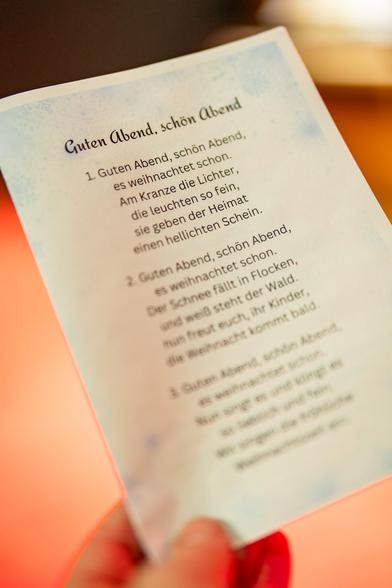 Guten Abend, schön Abend
1. Guten Abend, schön Abend,
es weihnachtet schon.
Am Kranze die Lichter,
die leuchten so fein,
sie geben der Heimat
einen hellichten Schein.
2. Guten Abend, schön Abend,
es weihnachtet schon.
Der Schnee fällt in Flocken,
und weiß steht der Wald.
nun freut euch, ihr Kinder,
die Weihnacht kommt bald.
3. Guten Abend, schön Abend,
es weihnachtet schon.
Nun singt es und klingt es
so lieblich und fein.
Wir singen die fröhliche
Weihnachtszeit ein.